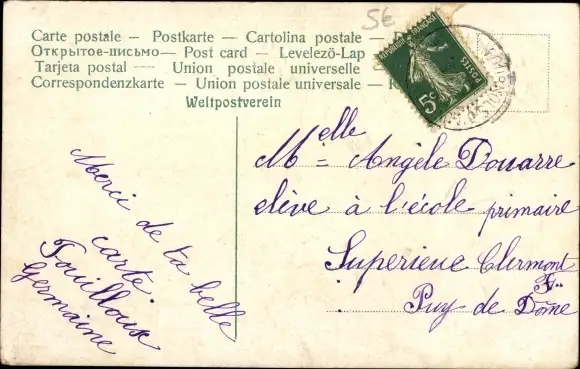 5c
Carte postale – Postkarte – Cartolina postale –
Открытое-письмо – Post card – Levelező-Lap
Tarjeta postal –– Union postale universelle
Correspondenzkarte – Union postale universale –
Weltpostverein
5c
POSTES
Merci de ta belle
carte
Fouilloux
Germaine
Melle Angèle Douarre
elève à l'école primaire
Superieue Clermont
F..
Puy de Dôme